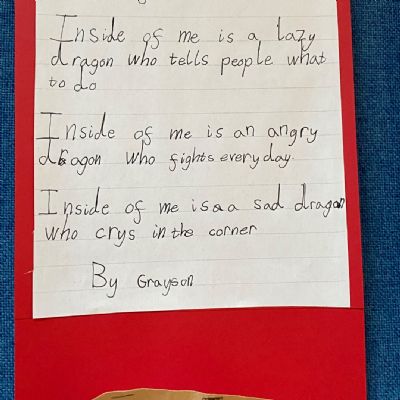 Inside of me is a lazy
dragon who tells people what
to do
Inside of me is an angry
dragon who fights everyday.
Inside of me is a sad dragon
who crys in the corner
By Grayson